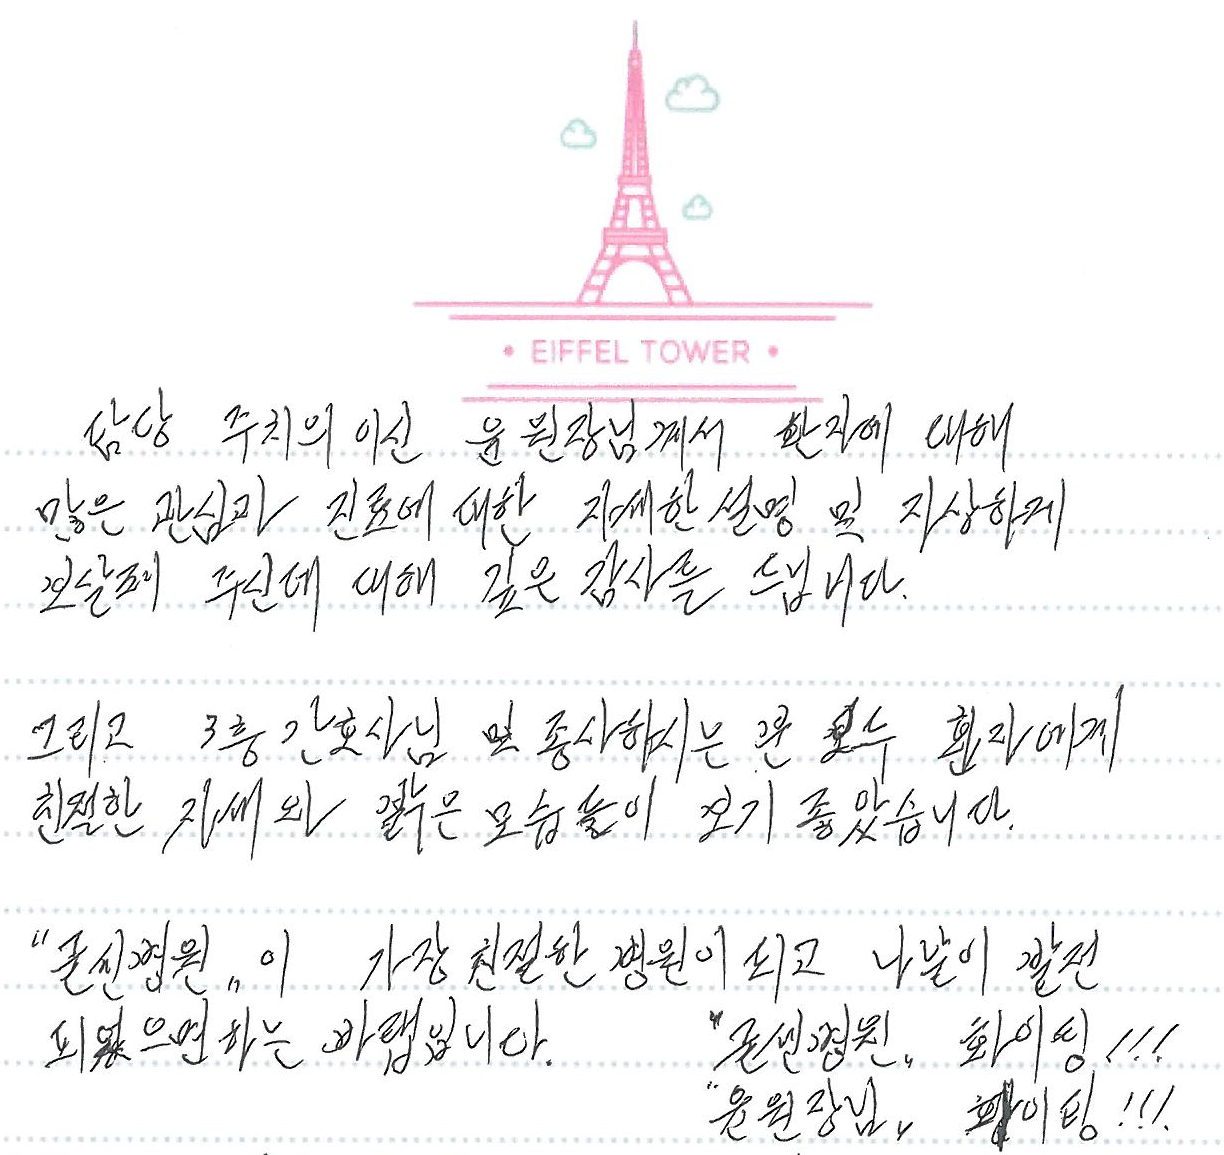 • EIFFEL TOWER •
담당 주치의이신 윤원장님께서 환자에 대해
많은 관심과 진료에 대한 자세한 설명 및 자상하게
보살펴 주신데 대해 깊은 감사를 드립니다.
그리고 3층 간호사님 및 종사하시는 분 모두 환자에게
친절한 자세와 밝은 모습들이 보기 좋았습니다.
이 가장 친절한 병원이 되고 나날이 발전
되었으면 하는 바램입니다.
화이팅!!!
"윤원장님" 화이팅!!!